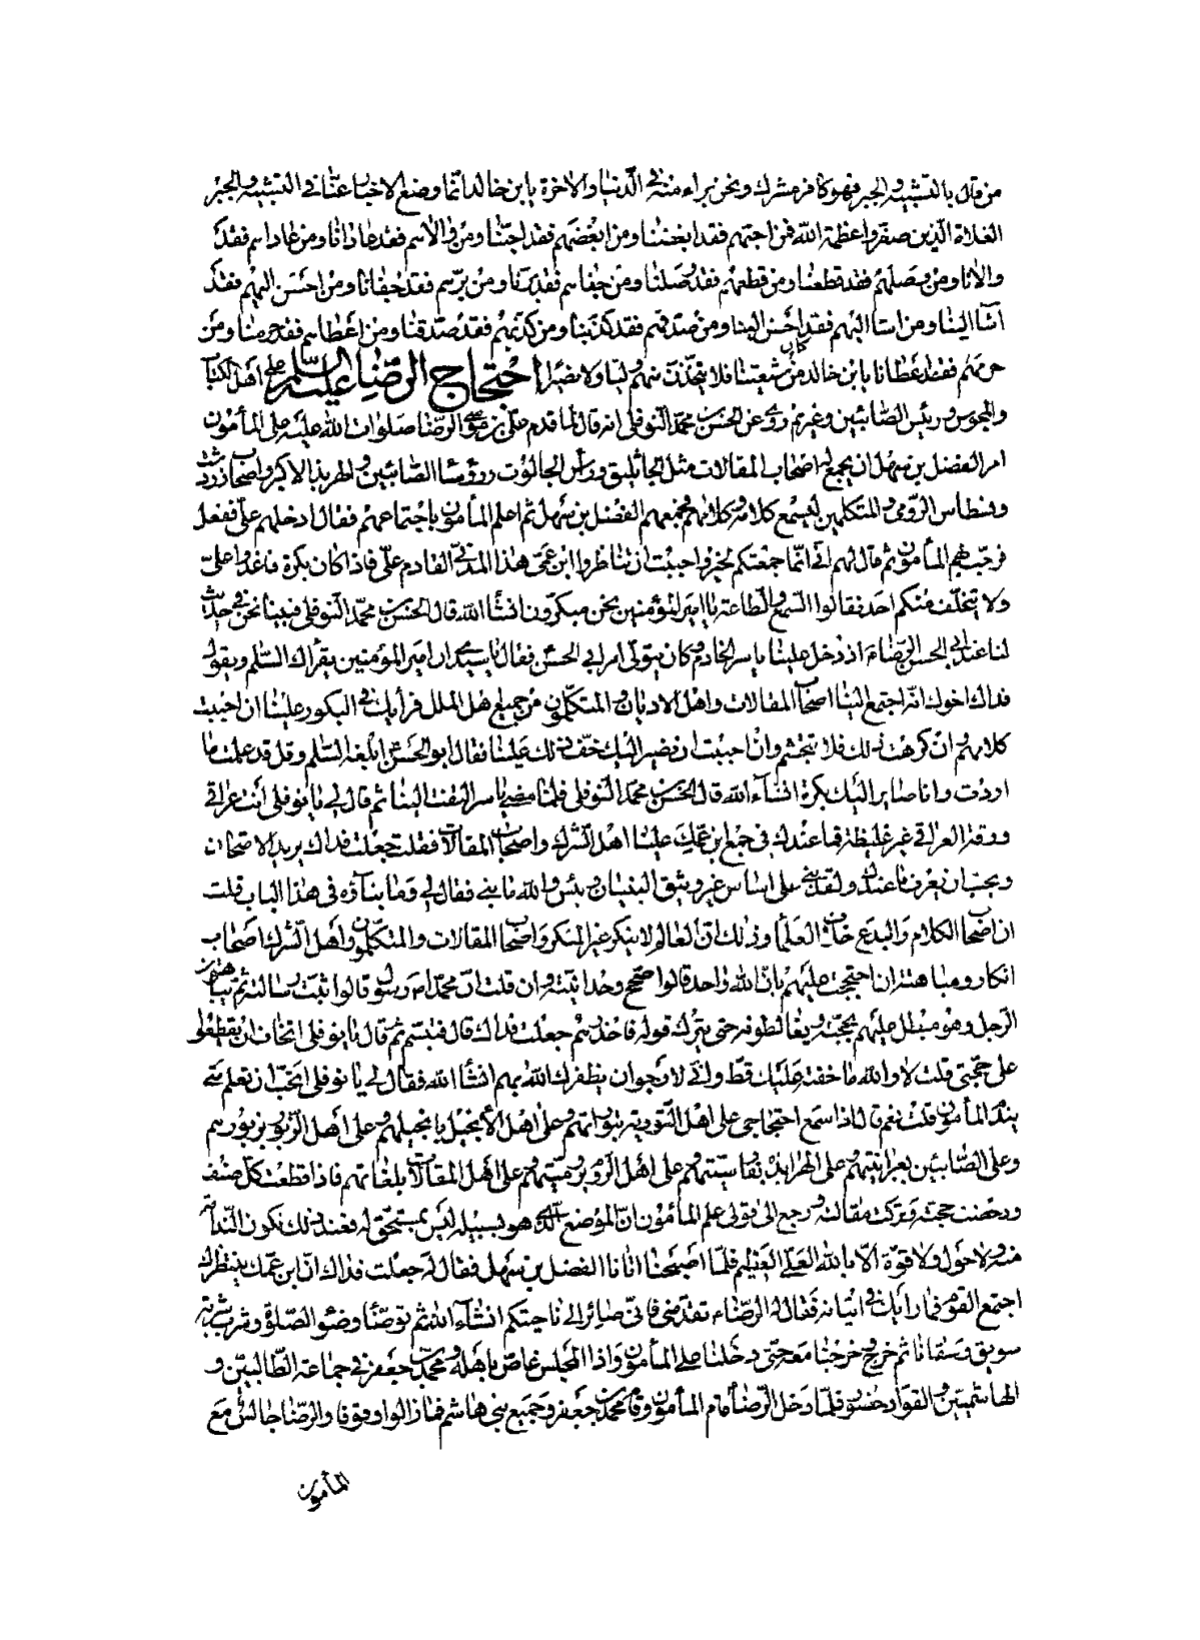 من قال بالتشبيه والجبر فهو كافر مشرك ونحن براء منه في الدنيا والاخرة يا ابن خالد انما وضع الاخبار عنا في التشبيه والجبر
الغلاة الذين صغروا عظمة الله فمن احبهم فقد ابغضنا ومن ابغضهم فقد احبنا ومن والاهم فقد عادانا ومن عاداهم فقد
والانا ومن وصلهم فقد قطعنا ومن قطعهم فقد وصلنا ومن جفاهم فقد برنا ومن برهم فقد جفانا ومن احسن اليهم فقد
اسآ الينا ومن اسآ اليهم فقد احسن الينا ومن صدقهم فقد كذبنا ومن كذبهم فقد صدقنا ومن اعطاهم فقد حرمنا ومن
حرمهم فقد اعطانا يا ابن خالد من كان شيعتنا فلا يتخذن منهم وليا ولا نصيرا احتجاج الرضا عليه السلم على اهل الكتاب
والمجوس ورئيس الصابئين وغيرهم روى عن الحسن بن محمد النوفلي انه قال لما قدم علي بن موسى الرضا صلوات الله عليه على المأمون
امر الفضل بن سهل ان يجمع له اصحاب المقالات مثل الجاثليق ورأس الجالوت ورؤسا الصابئين والهربذ الاكبر واصحاب زردشت
ونسطاس الرومي والمتكلمين ليسمع كلامه وكلامهم فجمعهم الفضل بن سهل ثم اعلم المأمون باجتماعهم فقال ادخلهم علي ففعل
فرحب بهم المأمون ثم قال لهم اني انما جمعتكم لخير واحببت ان تناظروا ابن عمي هذا المدني القادم علي فاذا كان بكرة فاغدوا علي
ولا يتخلف منكم احد فقالوا السمع والطاعة يا امير المؤمنين نحن مبكرون انشأ الله قال الحسن بن محمد النوفلي فبينا نحن في حديث
لنا عند ابي الحسن الرضاء اذ دخل علينا ياسر الخادم وكان يتولى امر ابي الحسن فقال يا سيدي ان امير المؤمنين يقرأك السلم ويقول
فداك اخوك انه اجتمع الينا اصحاب المقالات واهل الاديان والمتكلمون من جميع اهل الملل فرأيك في البكور علينا ان احببت
كلامهم وان كرهت ذلك فلا تتجشم وان احببت ان نصير اليك خف ذلك علينا فقال ابو الحسن ابلغه السلم وقل قد علمت ما
اردت وانا صاير اليك بكرة انشآء الله قال الحسن بن محمد النوفلي فلما مضى ياسر التفت الينا ثم قال لي يا نوفلي انت عراقي
ورقة العراقي غير غليظة فما عندك في جمع ابن عمك علينا اهل الشرك واصحاب المقالات فقلت جعلت فداك يريد الامتحان
ويحب ان يعرف ما عندك ولقد بنى على اساس غير وثيق البنيان وبئس والله ما بنى فقال لي وما بناؤه في هذا الباب قلت
ان اصحاب الكلام والبدع خلاف العلمآ وذلك ان العالم لا ينكر غير المنكر واصحاب المقالات والمتكلمون واهل الشرك اصحاب
انكار ومباهتة ان احتججت عليهم بان الله واحد قالوا صحح وحدانيته وان قلت ان محمدا ص رسول قالوا ثبت رسالته ثم يباهتون
الرجل وهو مبطل عليهم بحجته ويغالطونه حتى يترك قوله فاحذرهم جعلت فداك قال فتبسم ثم قال يا نوفلي اتخاف ان يقطعوا
على حجتي قلت لا والله ما خفت عليك قط واني لارجو ان يظفرك الله بهم انشأ الله فقال لي يا نوفلي اتحب ان تعلم متى
يندم المأمون قلت نعم قال اذا سمع احتجاجي على اهل التورية بتوراتهم وعلى اهل الانجيل بانجيلهم وعلى اهل الزبور بزبورهم
وعلى الصابئين بعبرانيتهم وعلى الهرابذة بفارسيتهم وعلى اهل الروم بروميتهم وعلى اهل المقالات بلغاتهم فاذا قطعت كل صنف
ودحضت حجته وتركت مقالته ورجع الى قولي علم المأمون ان الموضع الذي هو بسبيله ليس بمستحق له فعند ذلك تكون الندامة
منه ولا حول ولا قوة الا بالله العلي العظيم فلما اصبحنا اتانا الفضل بن سهل فقال له جعلت فداك ان ابن عمك ينتظرك
اجتمع القوم فما رأيك في اتيانه فقال له الرضاء تقدمني فاني صائر الى ناحيتكم انشآء الله ثم توضأ وضوء الصلوة وشرب شربة
سويق وسقانا ثم خرج وخرجنا معه حتى دخلنا على المأمون واذا المجلس غاص باهله ومحمد بن جعفر في جماعة الطالبيين و
الهاشميين والقواد حضور فلما دخل الرضا قام المأمون وقام محمد بن جعفر وجميع بني هاشم فما زالوا وقوفا والرضا جالس مع
المأمون